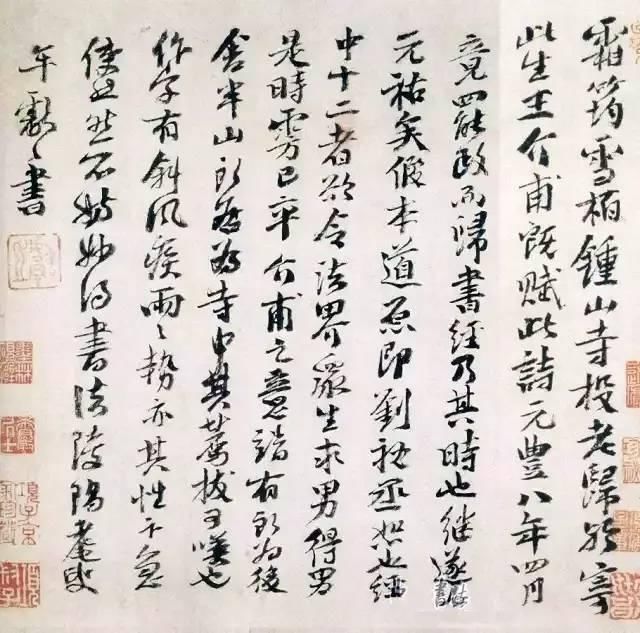 霜筠雪栢鍾山寺投老歸歟寄
此生王介甫既賦此詩元豐八年四月
竟罷政而歸書經乃其時也継遂
元祐矣本道原即劉秘丞恕也經
中十二者欲令法界衆生求男得男
是時雱已卒介甫之意有所為後
舍半山所居為寺由其薦拔可嘆也
作字有斜風疾雨之勢亦其性卞急
使然妙得書法陵陽耄叟
牟巘書